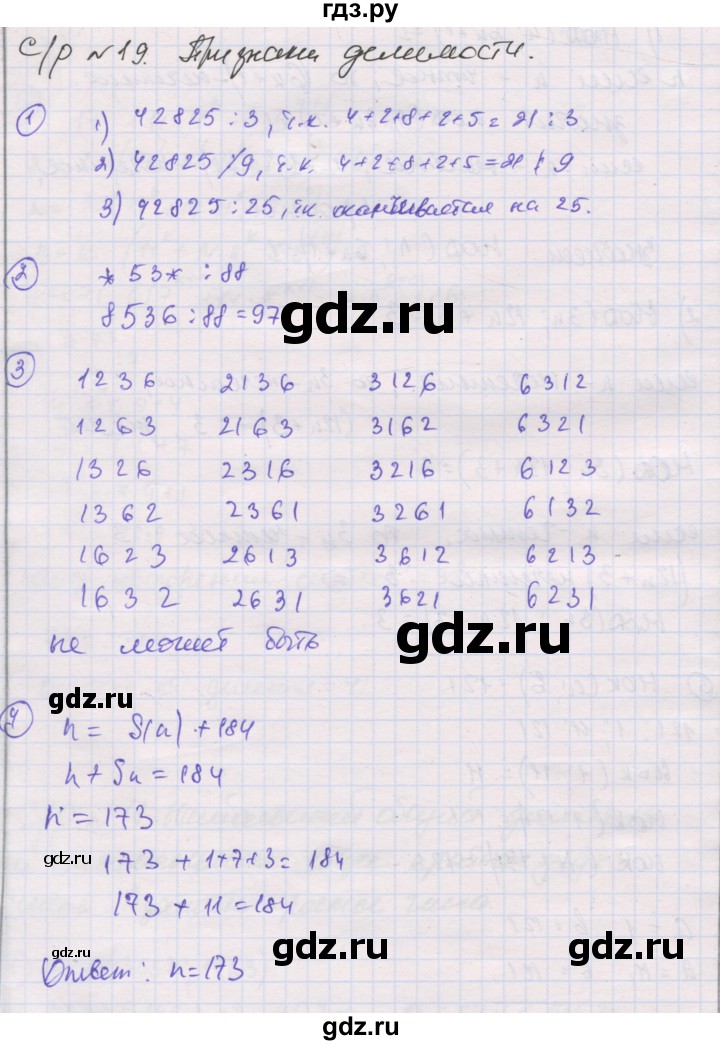 гдз.ру
С/р №19. Признаки делимости.
1
1) 42825 : 3, т.к. 4+2+8+2+5=21 : 3
2) 42825 / 9, т.к. 4+2+8+2+5=21 / 9
3) 42825 : 25, т.к. оканчивается на 25.
2
*53* : 88
8536 : 88 = 97
gdz.ru
3
1236 2136 3126 6312
1263 2163 3162 6321
1326 2316 3216 6123
1362 2361 3261 6132
1623 2613 3612 6213
1632 2631 3621 6231
не может быть
gdz.ru
gdz.ru
4
n = S(n) + 184
n + Sn = 184
gdz.ru
n = 173
173 + 1+7+3 = 184
gdz.ru
173 + 11 = 184
gdz.ru
gdz.ru
Ответ: n=173
gdz.ru